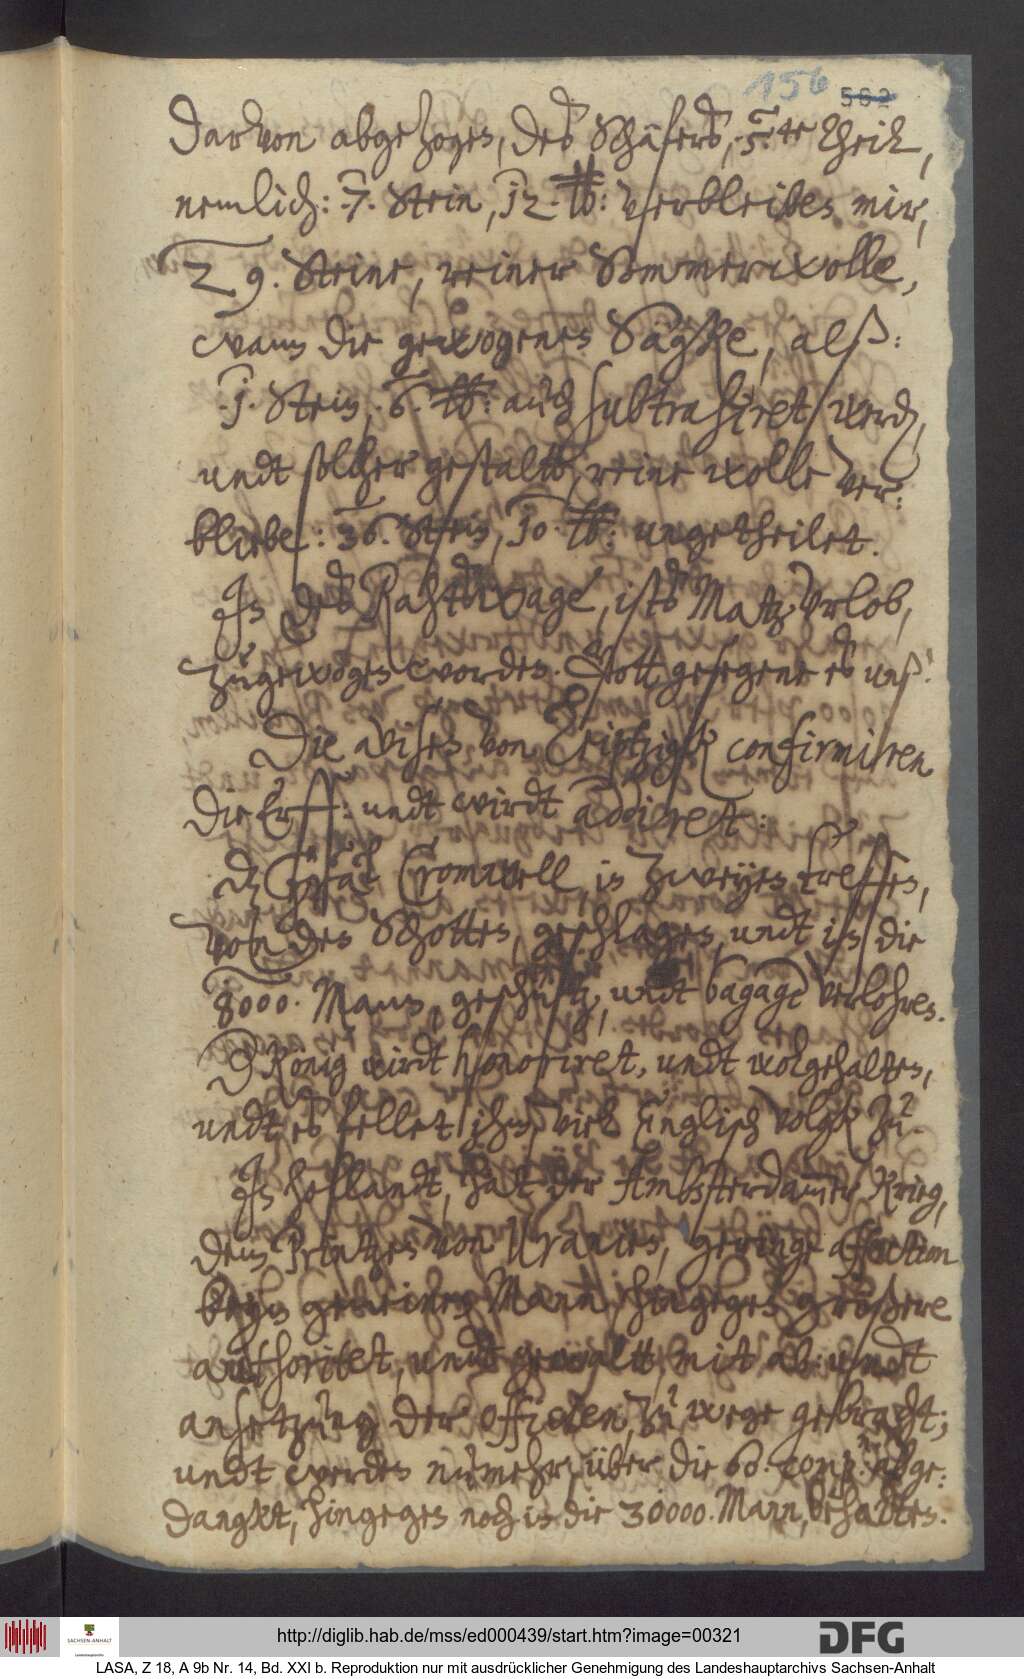 156 562
darvon abgezogen, des Schäfers, 5.te theil,
nemlich: 7. Stein, 12. ℔: verbleiben mir,
29. Steine, reiner Sommerwolle,
wann die gewogenen Säcke, alß:
1. Stein, 6. ℔: auch subtrahiret werden,
undt solcher gestaltt, reine wolle ver:
bliebe: 36. Stein, 10. ℔: ungetheilet.
In des Rahtswage, ists Matz Urlob,
zugewogen worden. Gott gesegene es unß!
Die avisen von Leiptzigk confirmiren
die Erff: undt wirdt addiret:
Cromwell in zweyen treffen,
von den Schotten, geschlagen, undt in die
8000. Mann, geschütz, undt bagage verlohren.
D König wirdt honoriret, undt wolgehalten,
undt es fellet ihm, viel Englisch volgk zu.
In hollandt, hat der Ambsterdamer Krieg,
dem Printzen von Uranien, geringe affection
beym gemeinen Mann, hingegen größere
authoritet, undt gewaltt, mit ab: undt
ansetzung der officien, zu wege gebracht;
undt werden numehr, über die 60. comp.n abge:
dangkt, hingegen noch in die 30000. Mann, behalten.
http://diglib.hab.de/mss/ed000439/start.htm?image=00321
SACHSEN-ANHALT
DFG
LASA, Z 18, A 9b Nr. 14, Bd. XXI b. Reproduktion nur mit ausdrücklicher Genehmigung des Landeshauptarchivs Sachsen-Anhalt